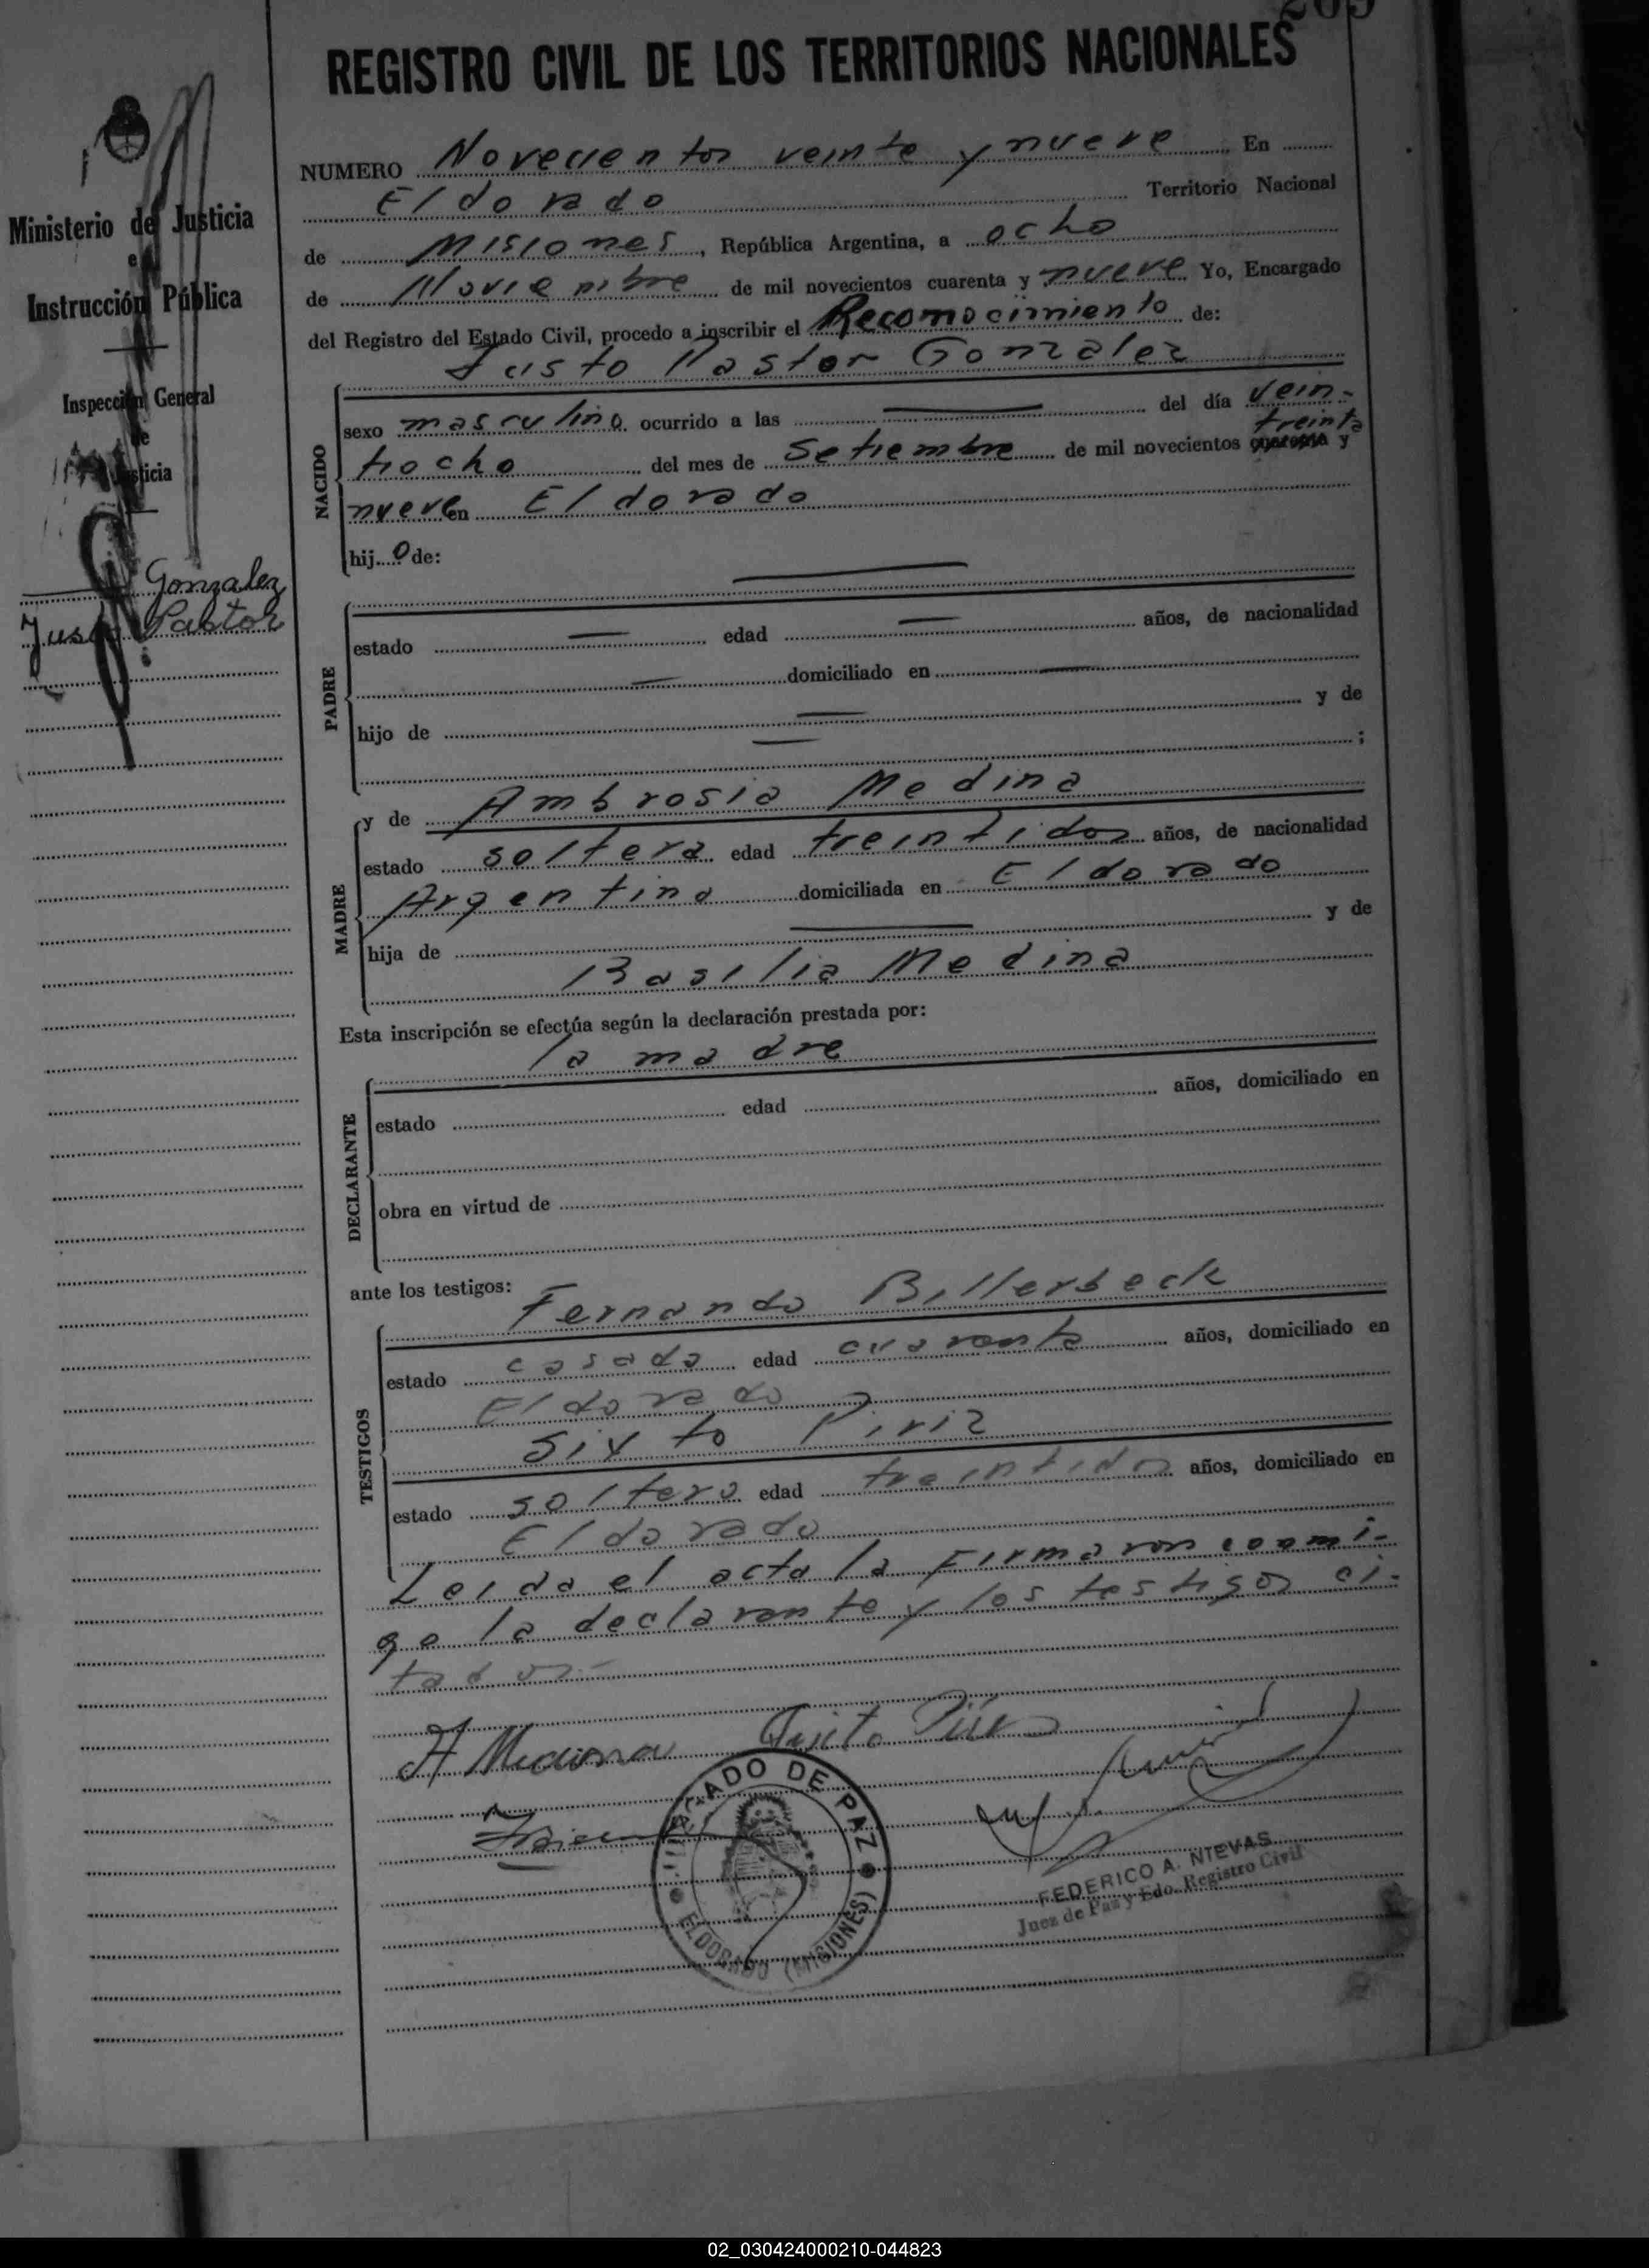 269
REGISTRO CIVIL DE LOS TERRITORIOS NACIONALES
Ministerio de Justicia
e
Instrucción Pública
Inspección General
de
Justicia
Gonzalez
Justo Pastor
NUMERO Novecientos veinte y nueve En
Eldorado Territorio Nacional
de Misiones, República Argentina, a ocho
de Noviembre de mil novecientos cuarenta y nueve Yo, Encargado
del Registro del Estado Civil, procedo a inscribir el Reconocimiento de:
Justo Pastor Gonzalez
NACIDO
sexo masculino ocurrido a las del día vein-
treinta
tiocho del mes de Setiembre de mil novecientos cuarenta y
nueve en Eldorado
hijo de:
PADRE
estado edad años, de nacionalidad
domiciliado en
hijo de y de
;
MADRE
y de Ambrosia Medina
estado soltera edad treintidos años, de nacionalidad
Argentina domiciliada en Eldorado
hija de y de
Basilia Medina
Esta inscripción se efectúa según la declaración prestada por:
la madre
DECLARANTE
estado edad años, domiciliado en
obra en virtud de
ante los testigos: Fernando Billerbeck
TESTIGOS
estado casado edad cuarenta años, domiciliado en
Eldorado
Sixto Piriz
estado soltero edad treintidos años, domiciliado en
Eldorado
Leida el acta la firmaron conmi-
go la declarante y los testigos ci-
tados.-
A Medina
JUZGADO DE PAZ
ELDORADO (MISIONES)
FEDERICO A. NIEVAS
Juez de Paz y Edo. Registro Civil
02_030424000210-044823